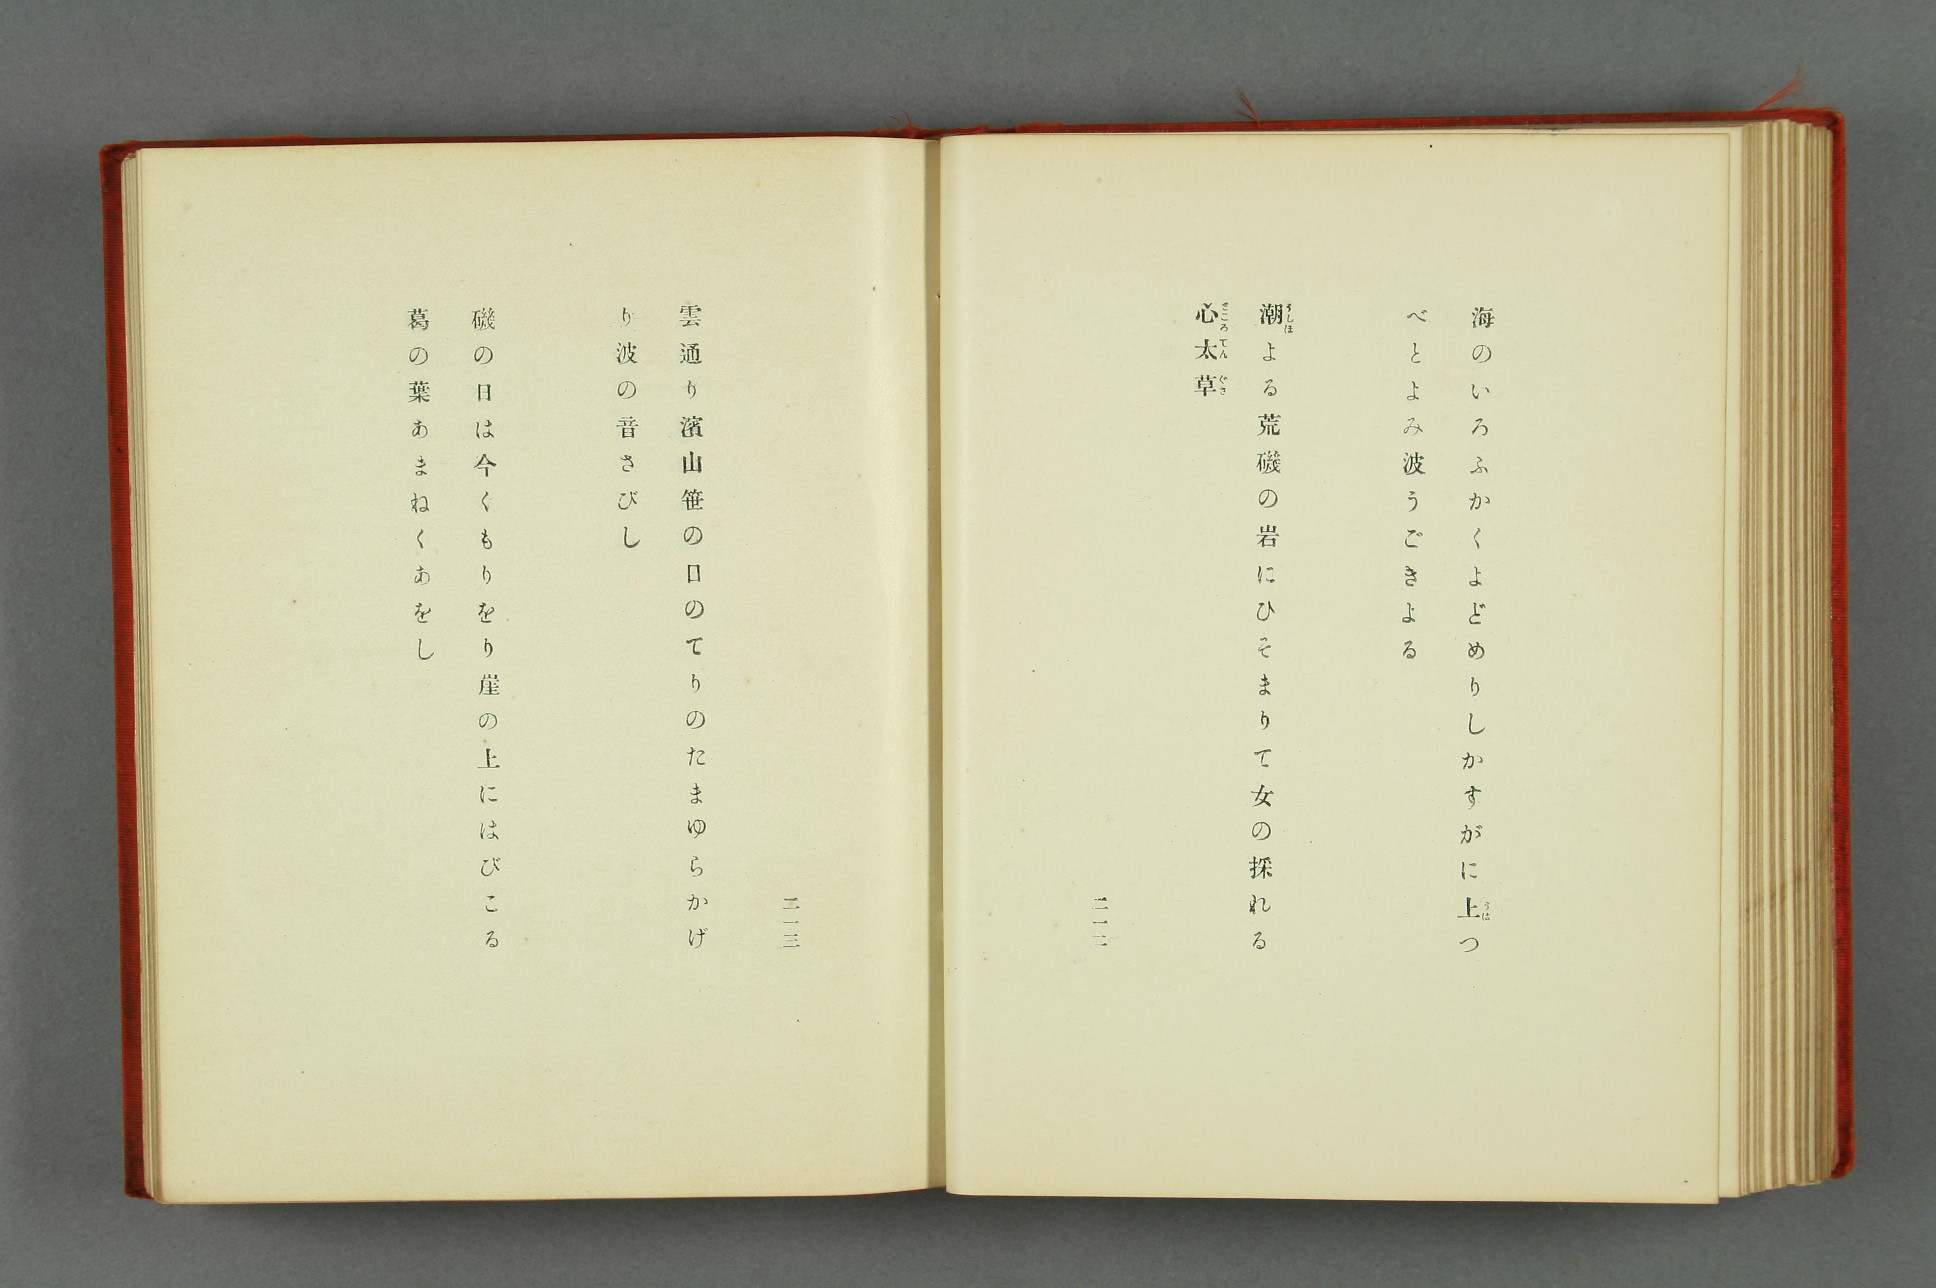 海のいろふかくよどめりしかすがに上つ
べとよみ波うごきよる
潮よる荒磯の岩にひそまりて女の採れる
心太草
二一二
二一三
雲通り濱山笹の日のてりのたまゆらかげ
り波の音さびし
磯の日は今くもりをり崖の上にはびこる
葛の葉あまねくあをし